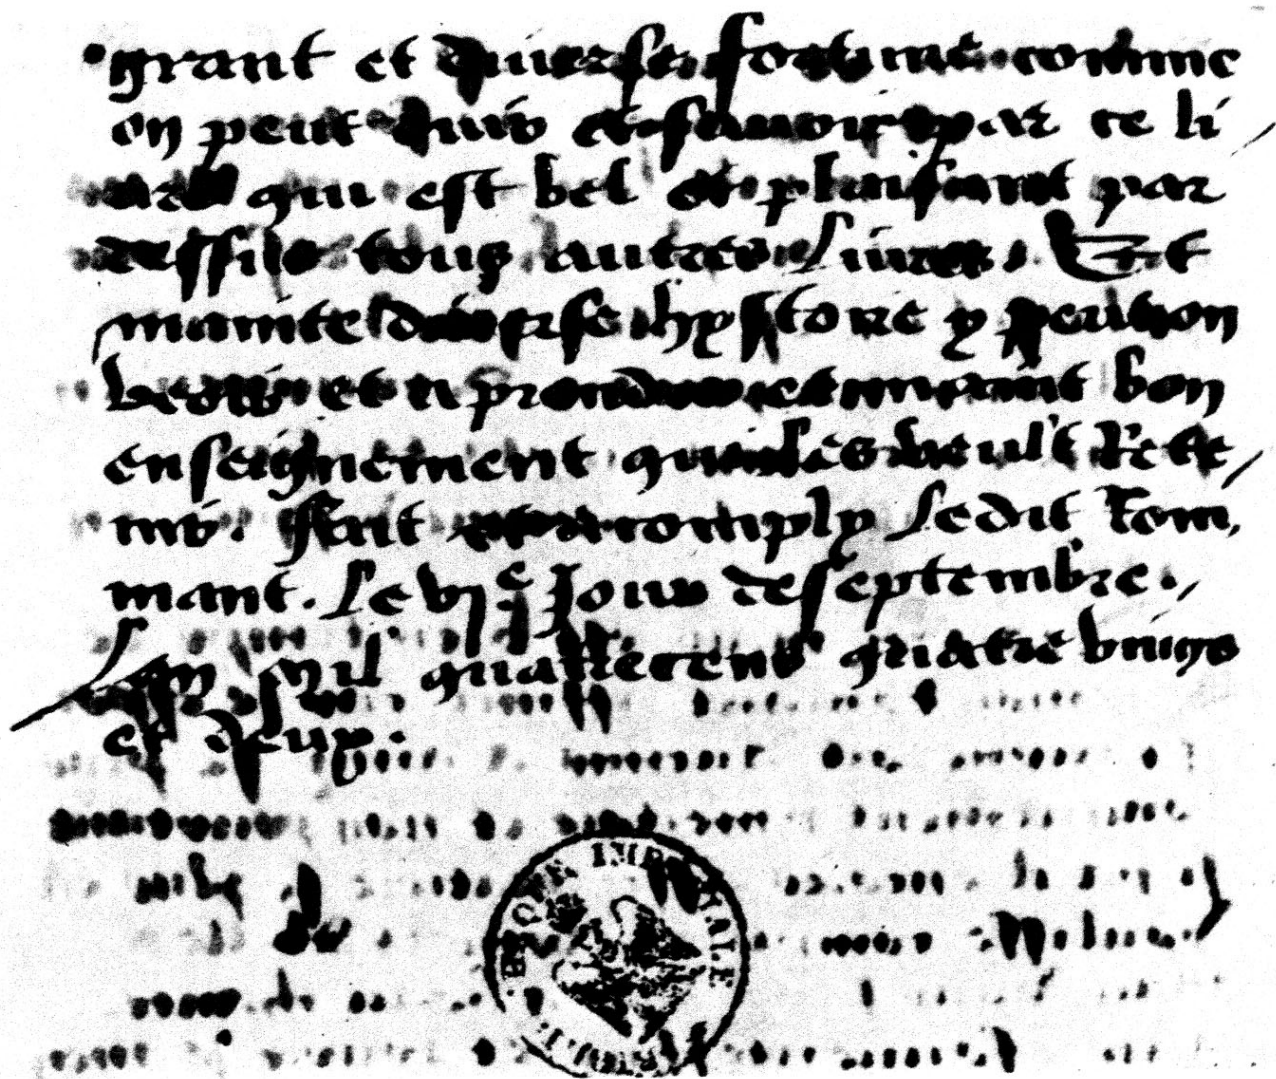 grant et diuerse fortune comme
on peut ouir et sauoir par ce li
ure qui est bel et plaisant par
dessus tous autres liures. Et
mainte diuerse hystoire y peut on
veoir et aprendre et maint bon
enseignement qui les veult rete
nir. fait et acomply le dit rom
mant. Le vje Jour de septembre.
Lan mil quattrecens quatre vings
et deux.
IMPERIALE